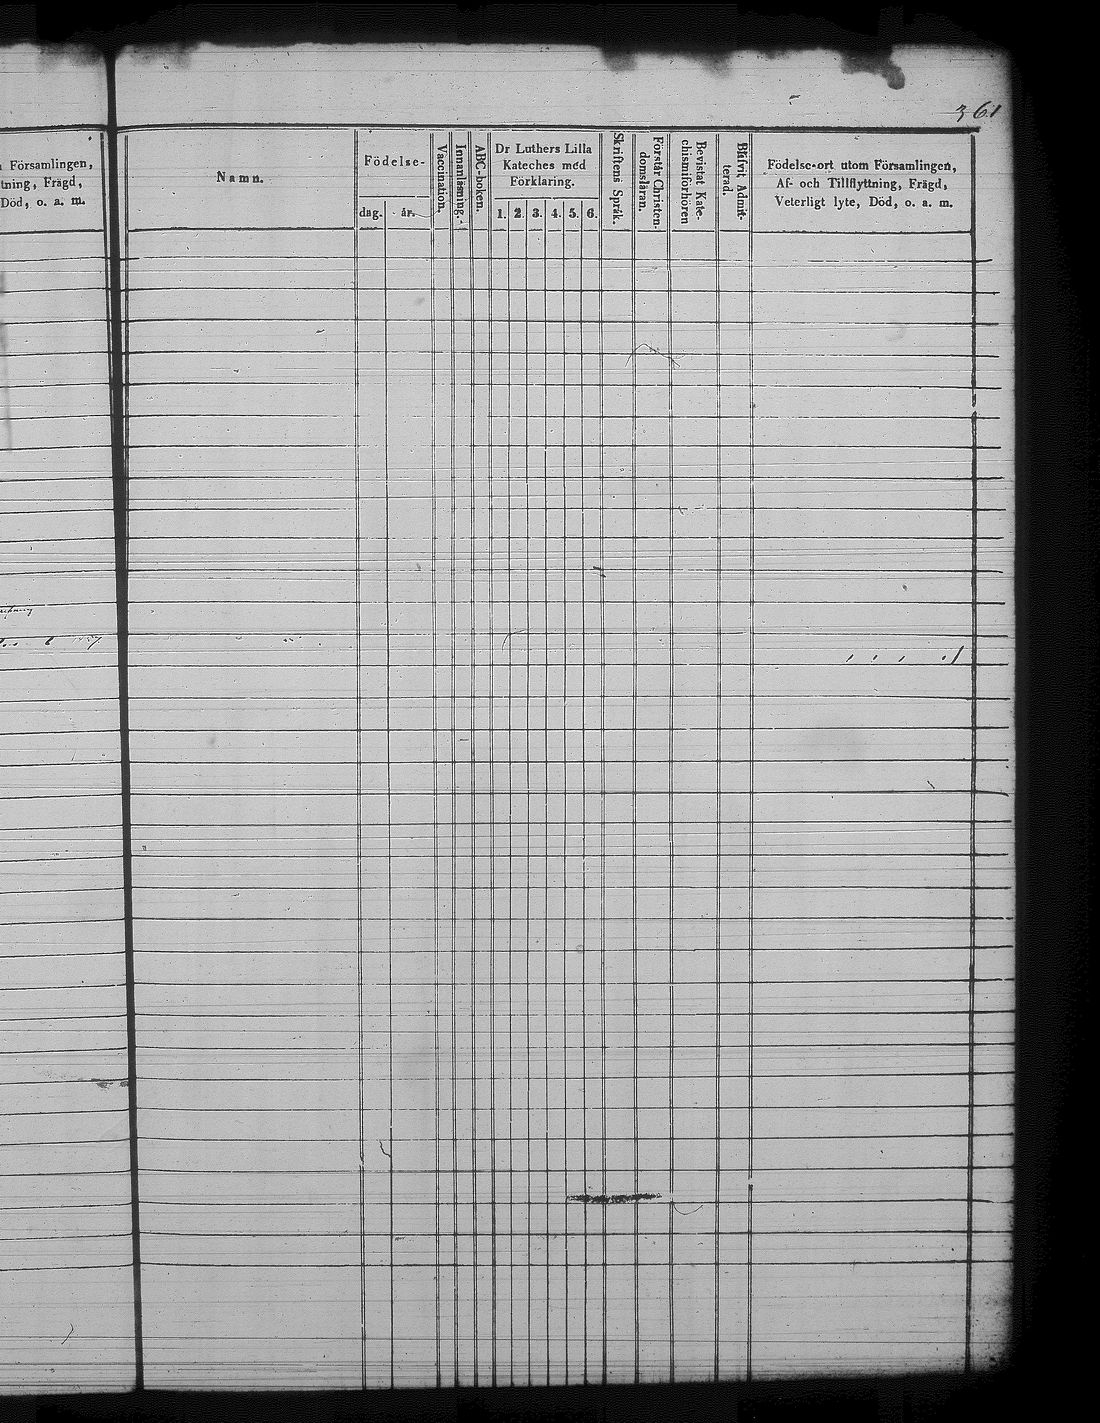 361
Församlingen,
Frägd,
Död, o. a. m.
Namn.
Födelse-
dag.
år.
Vaccination.
Innanläsning.
ABC-boken.
Dr Luthers Lilla
Kateches med
Förklaring.
1. 2. 3. 4. 5. 6.
Skriftens Språk.
Förstår Christen-
domsläran.
Bevistat Kate-
chismiförhören
Admit-
terad.
Födelse-ort utom Församlingen,
Af- och Tillflyttning, Frägd,
Veterligt lyte, Död, o. a. m.